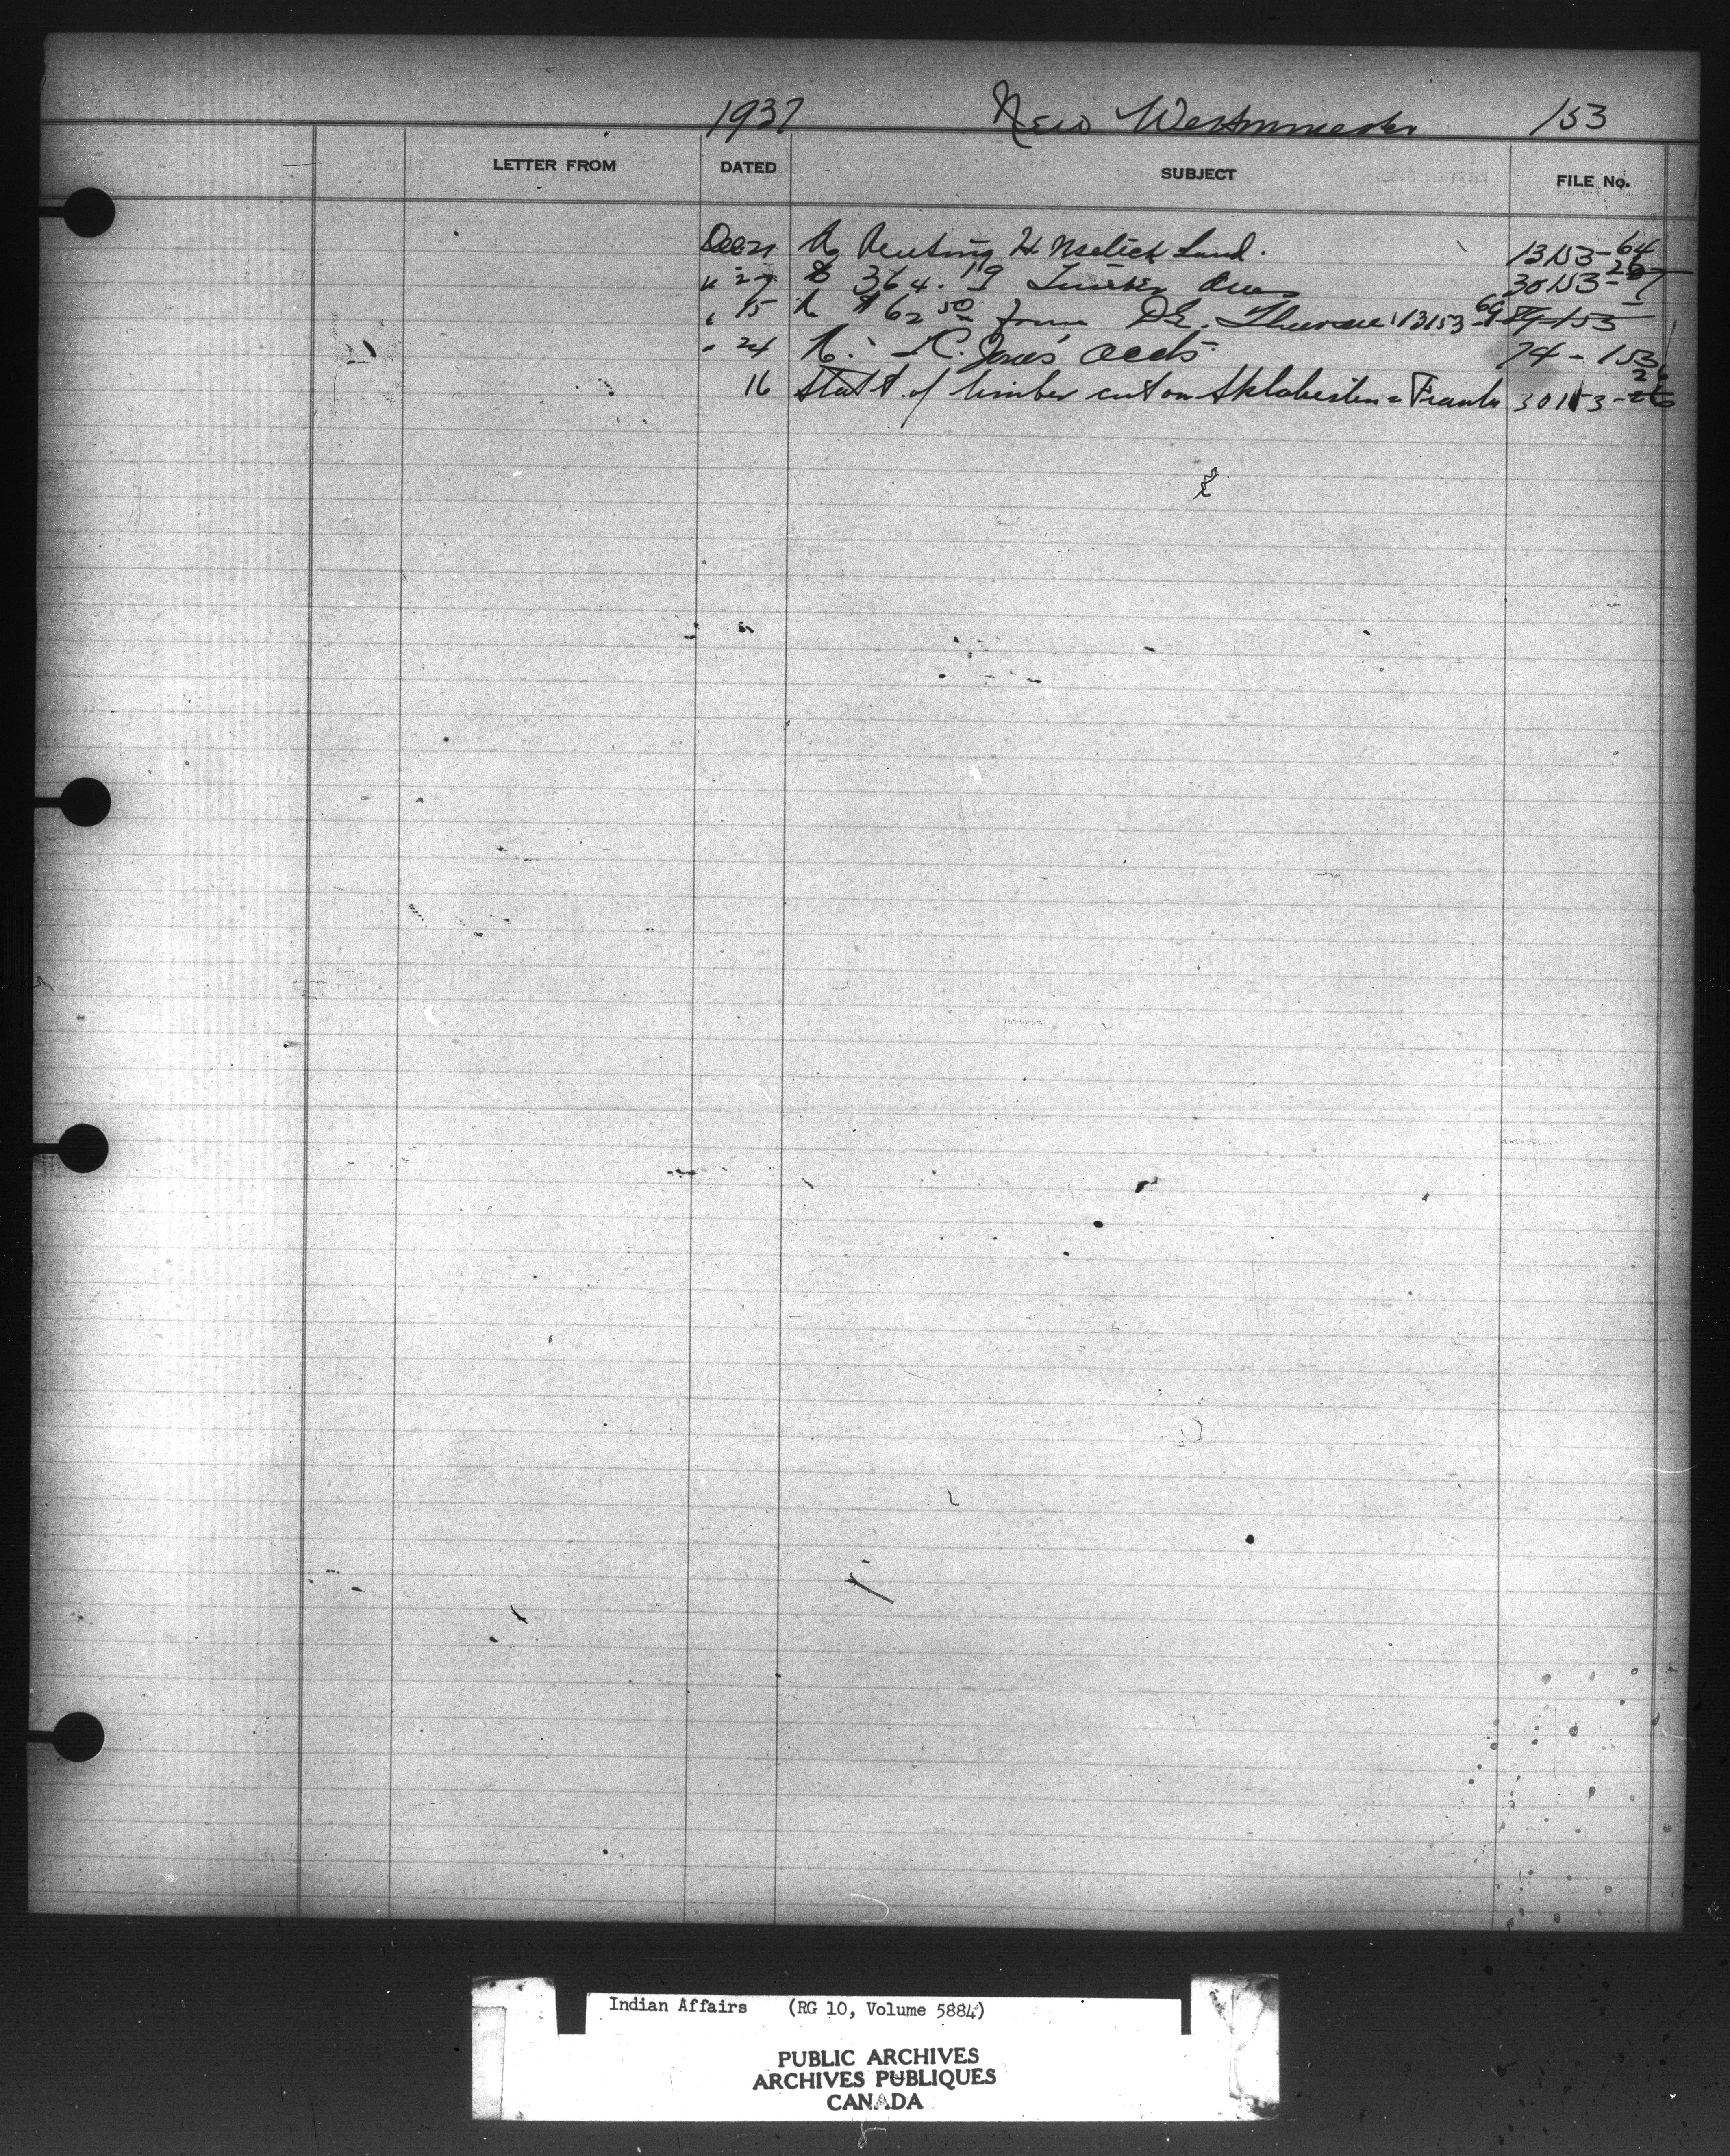 1937 New Westminster 153
LETTER FROM DATED SUBJECT FILE No.
Dec 21 Renting Land. 13153-64
" 27 $ 364.19 Timber dues 30153-
" 15 $62 50 from D.E. 13153-69 153
" 24 Jones' accts. 74-153
16 Statt. of timber cut on 30153-26
Indian Affairs (RG 10, Volume 5884)
PUBLIC ARCHIVES
ARCHIVES PUBLIQUES
CANADA